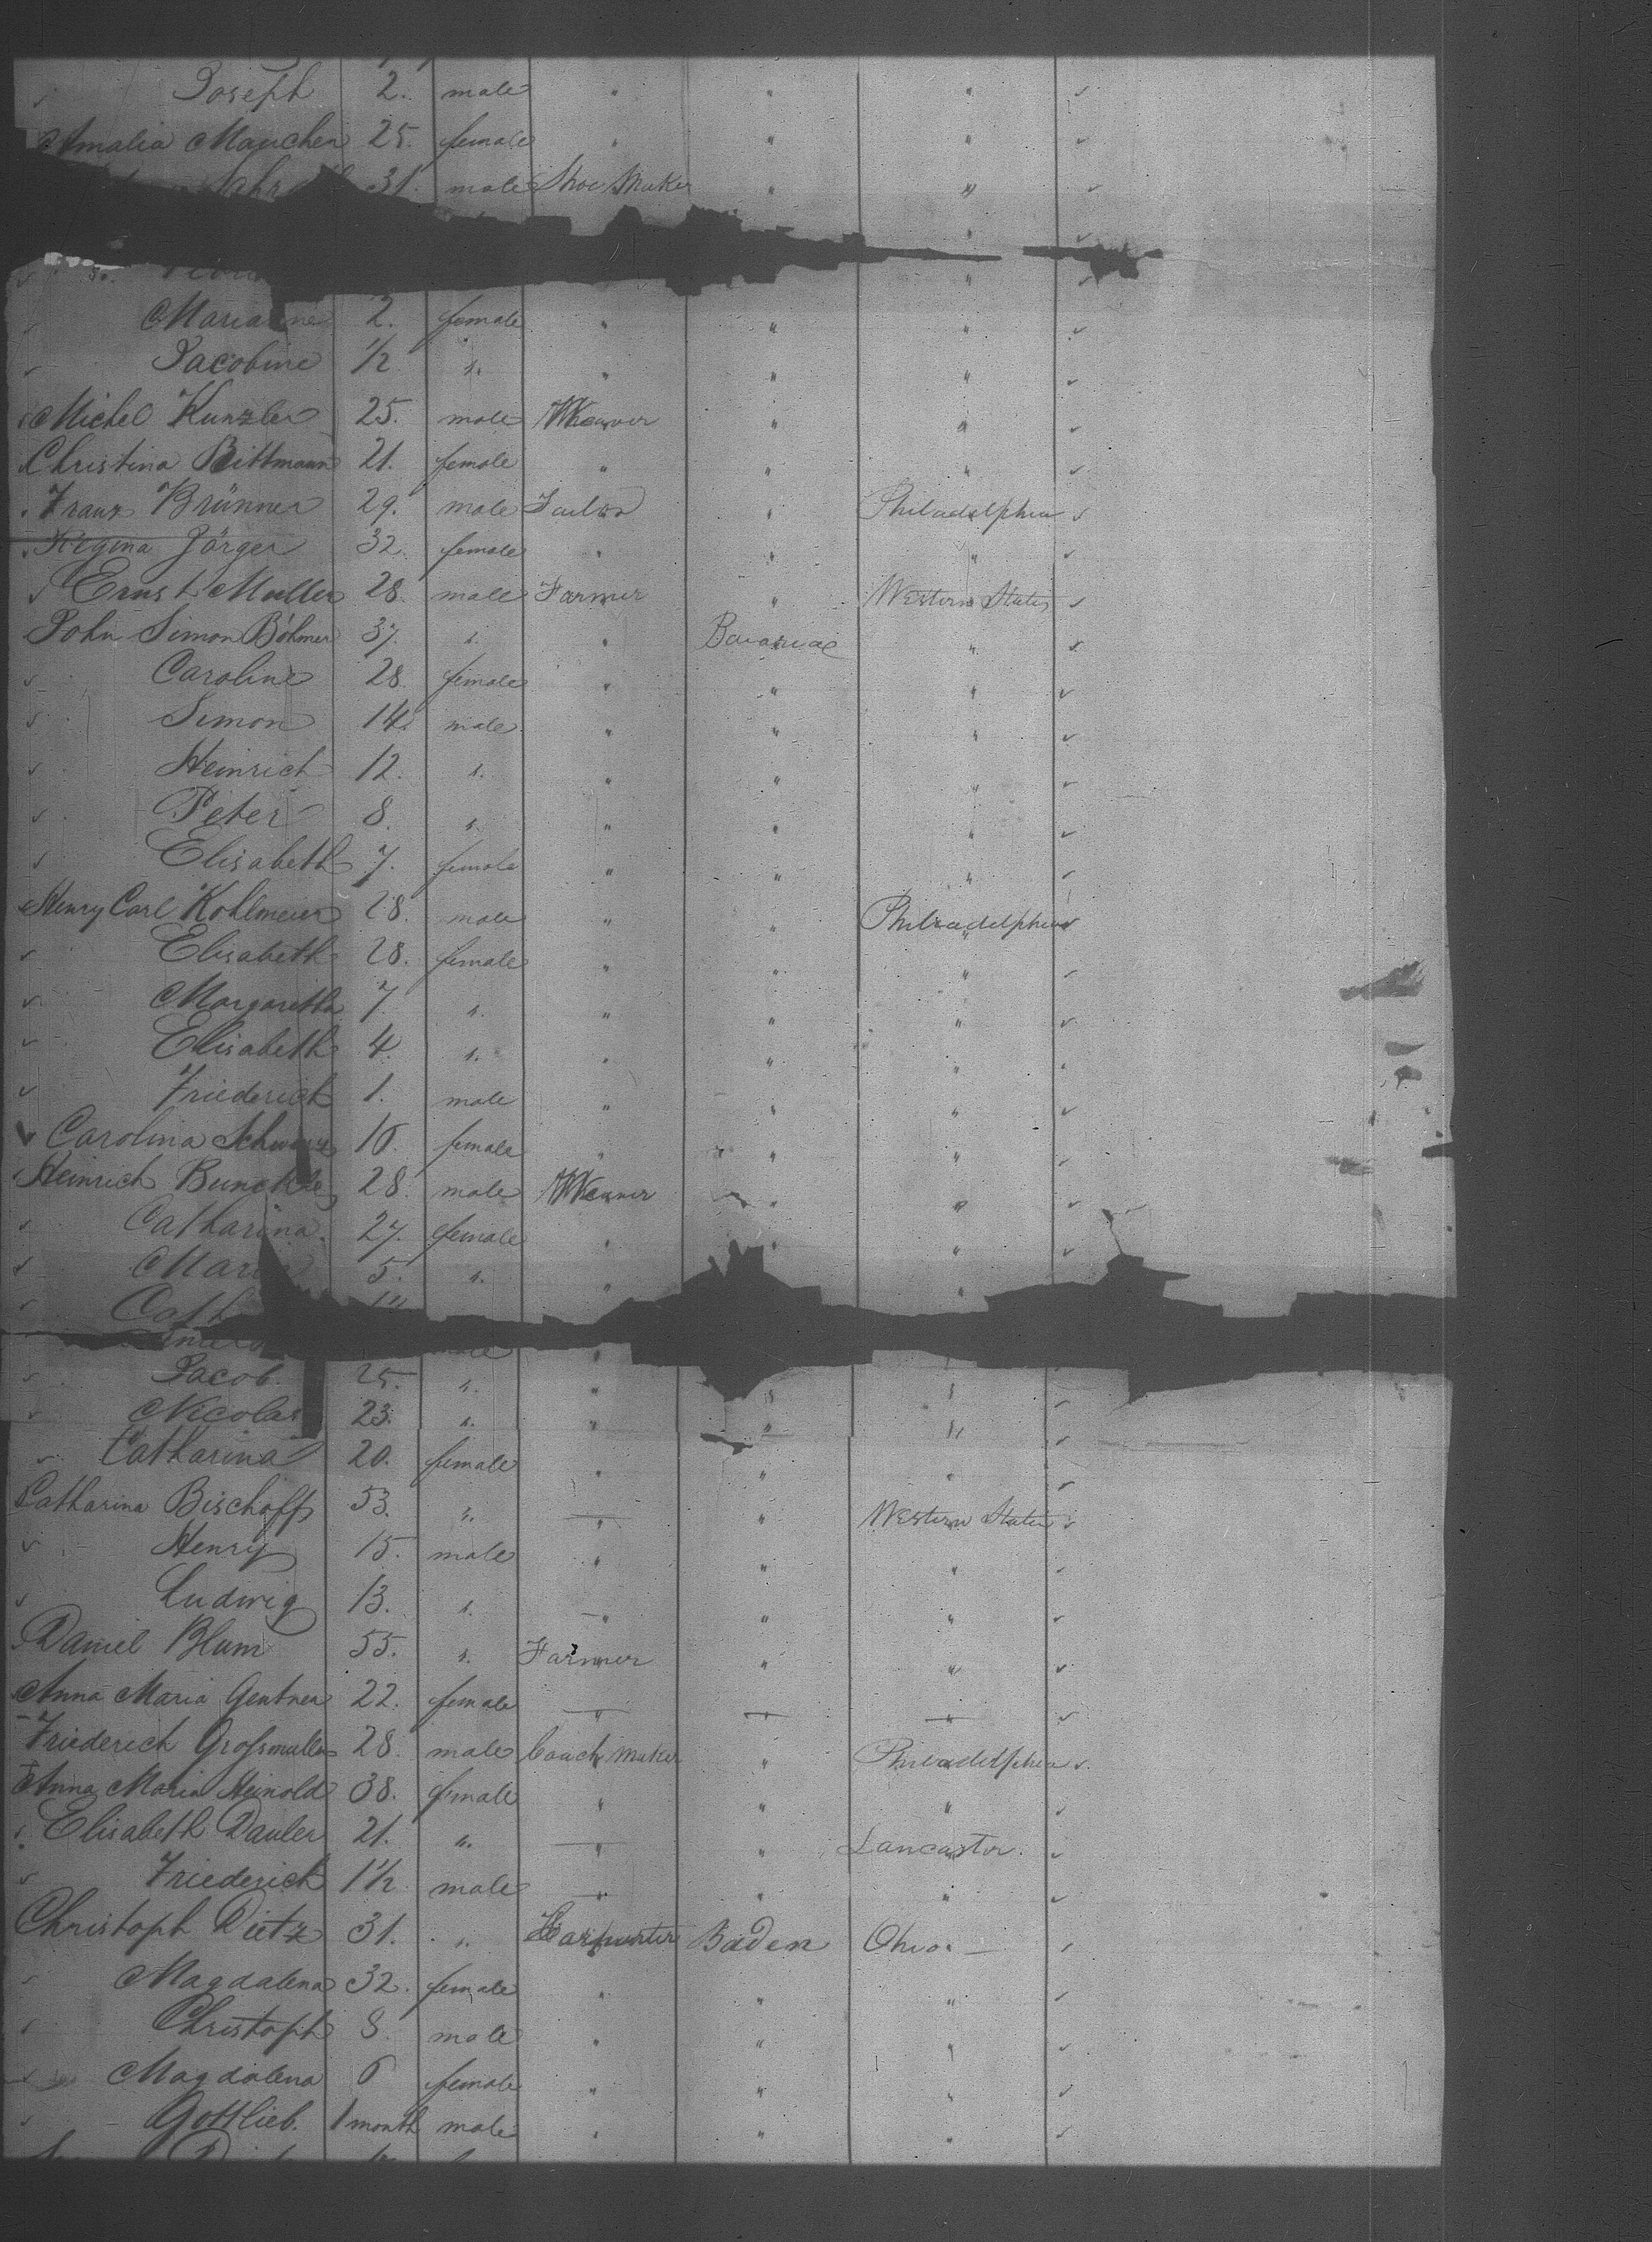 Joseph 2. male " " "
Amalia Mauchen 25. female " " "
31. male Shoe Maker " "
"
"
Marianne 2. female " " "
Jacobine 1/2 ". " " "
Michel Kunzler 25. male Weaver " "
Christina Bittmann 21. female " " "
Franz Brünner 29. male Tailor " Philadelphia
Regina Jörger 32. female " " "
Ernst Muller 28. male Farmer " Western States
John Simon Böhmer 37. ". " Bavaria "
Caroline 28. female " " "
Simon 14. male " " "
Heinrich 12. ". " " "
Peter 8. ". " " "
Elisabeth 7. female " " "
Henry Carl Kohlmeier 28. male " " Philadelphia
Elisabeth 28. female " " "
Margaretha 7. ". " " "
Elisabeth 4. ". " " "
Friederich 1. male " " "
Carolina female " " "
Heinrich 28. male Weaver " "
Catharina. 27. female " " "
Maria 5. ". " "
Cath
male "
Jacob. 25. ". " " "
Nicolas 23. ". " " "
Catharina 20. female " " "
Catharina Bischoff 53. ". " " Western States
Henry 15. male " " "
Ludwig 13. ". " " "
Daniel Blum 55. ". Farmer " "
Anna Maria Gentner 22. female " " "
Friederich Grossmuller 28. male Coach Maker " Philadelphia
Anna Maria Heinold 38. female " " "
Elisabeth Dauler 21. ". " " Lancaster.
Friederich 1 1/2 male " " "
Christoph Dietz 31. ". Carpenter Baden Ohio. —
Magdalena 32. female " " "
Christoph 8. male " " "
Magdalena 6 female " " "
Gottlieb. 1 month male " " "